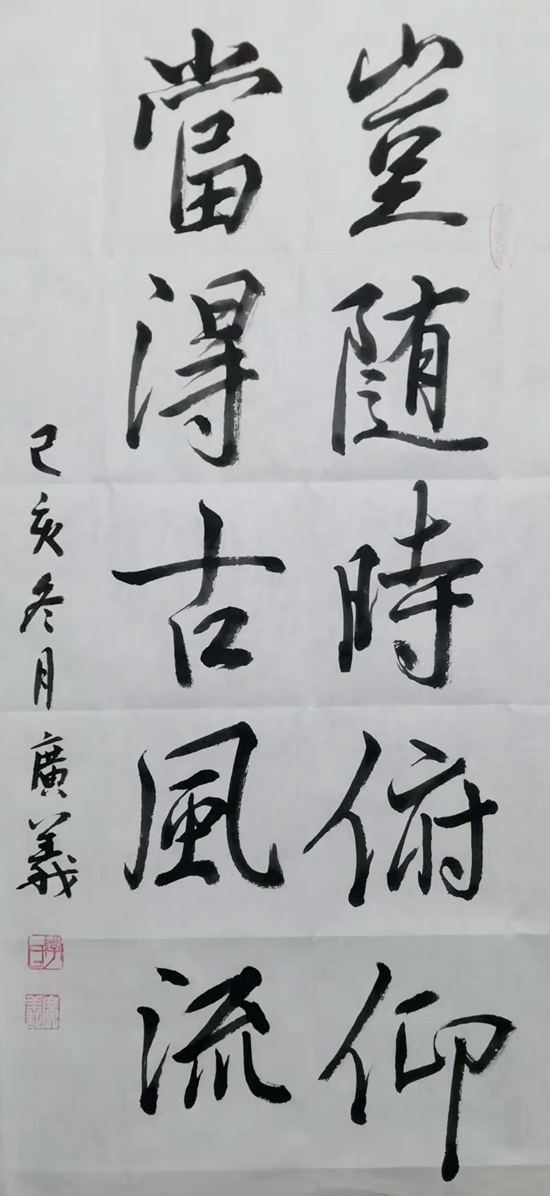 豈随時俯仰
當得古風流
己亥冬月廣義